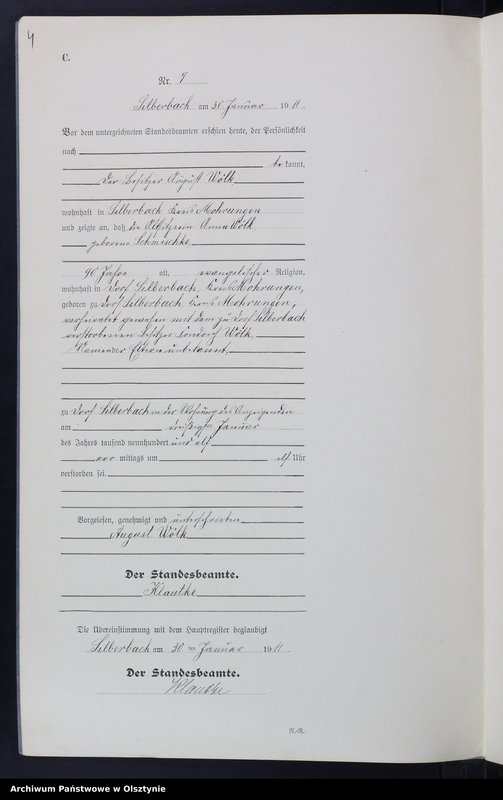 4
C.
Nr. 4
Silberbach am 30 Januar 1911.
Vor dem unterzeichneten Standesbeamten erschien heute, der Persönlichkeit
nach
be kannt,
der Besitzer August Wölk
wohnhaft in Silberbach Kreis Mohrungen
und zeigte an, daß die Altsitzerin Anna Wölk,
geborene Schmischke
90 Jahre alt, evangelischer Religion,
wohnhaft in Dorf Silberbach, Kreis Mohrungen,
geboren zu Dorf Silberbach Kreis Mohrungen,
verheiratet gewesen mit dem zu Dorf Silberbach
verstorbenen Besitzer Friedrich Wölk,
Namen der Eltern unbekannt,
zu Dorf Silberbach in der Wohnung des Anzeigenden
am dreißigsten Januar
des Jahres tausend neunhundert und elf
vor mittags um elf Uhr
verstorben sei.
Vorgelesen, genehmigt und unterschrieben
August Wölk
Der Standesbeamte.
Klautke
Die Übereinstimmung mit dem Hauptregister beglaubigt
Silberbach am 30 ten Januar 1911.
Der Standesbeamte.
Klautke
N.-R.
Archiwum Państwowe w Olsztynie